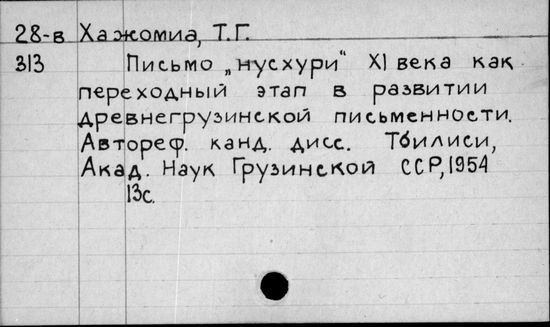 28-в Хажомиа, Т.Г.
313 Письмо „нусхури“ XI века как
переходный этап в развитии
древнегрузинской письменности.
Автореф. канд. дисс. Тбилиси,
Акад. Наук Грузинской ССР, 1954
13с.